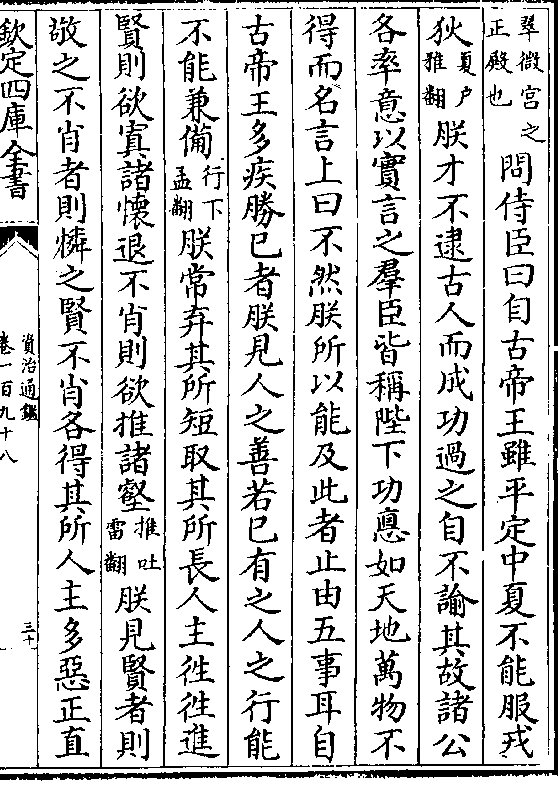 翠微宫之
正殿也
問侍臣曰自古帝王雖平定中夏不能服戎
狄
夏户
雅翻
朕才不逮古人而成功過之自不諭其故諸公
各率意以實言之羣臣皆稱陛下功悳如天地萬物不
得而名言上曰不然朕所以能及此者止由五事耳自
古帝王多疾勝已者朕見人之善若已有之人之行能
不能兼備
行下
孟翻
朕常弃其所短取其所長人主徃徃進
賢則欲寘諸懷退不肖則欲推諸壑
推吐
雷翻
朕見賢者則
敬之不肖者則憐之賢不肖各得其所人主多惡正直
欽定四庫全書
資治通鑑
卷一百九十八
三十